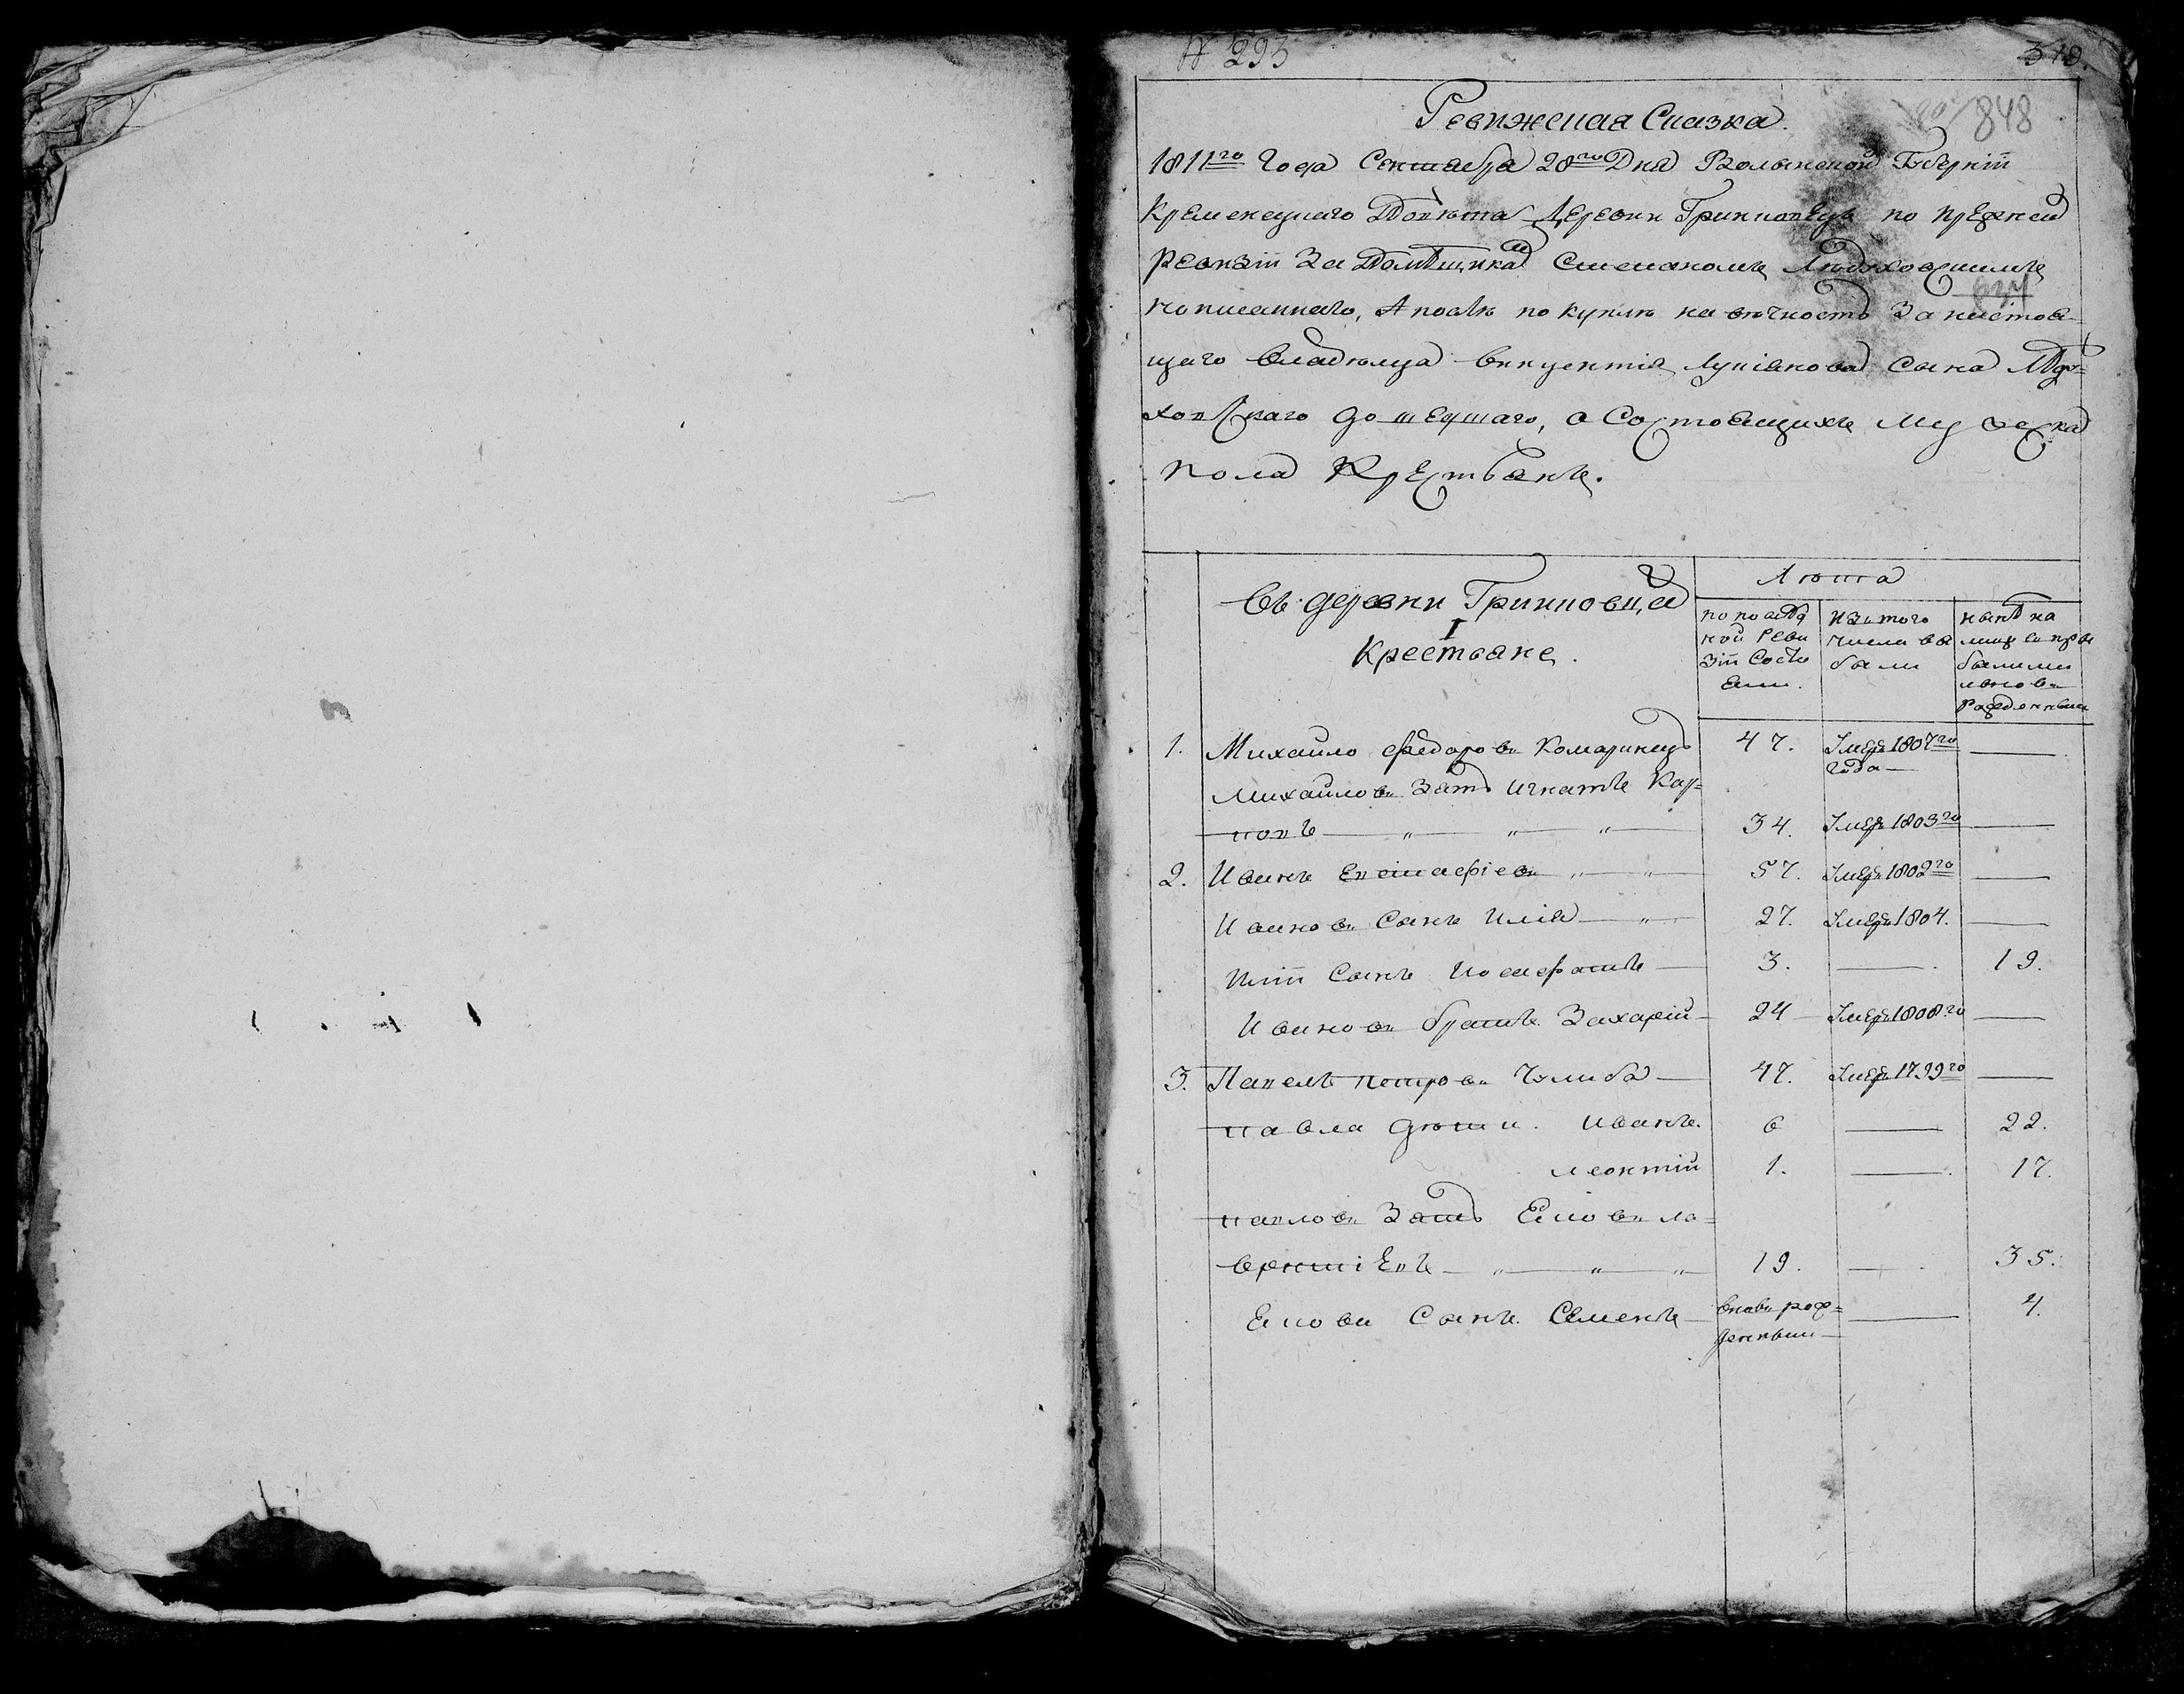 № 293
319.
848
Ревижская Сказка.
1811го Года Сентября 28го Дня Волынской Губернїи
Кременецкаго Повѣта Деревни Гринковецъ по прежней
Ревизїи За Помѣщикам Степаномъ
834
написаннаго, А послѣ по купли на вѣчность За настоя-
щаго Владѣльца Викцентїя Лукїянова Сына
до шедшаго, о Состоящихъ Мужеска
пола Крестьянъ.
Въ деревни Гринковцай
I
Крестьяне.
Лѣта
по послѣд
ной Реви
зїи Состо
яли.
Изтого
числа вы
были
нынѣ на
лицо съ при
былими
ивновъ
рожденными
1. Михайло Федоровъ Комаринецъ 47. Умеръ 1807го —
года —
Михайловъ Зять Игнатъ Кар=
повъ — „ — „ — „ — 34. Умеръ 1803го —
2. Иванъ Евстафїевъ „ — „ — 57. Умеръ 1802го —
Ивановъ Сынъ Илїя — „ — 27. Умеръ 1804. —
Илїи Сынъ Иосифатъ — 3. — 19.
Ивановъ братъ Захарїй — 24 — Умеръ 1808го —
3. Павелъ Петровъ Чолиба — 47. Умеръ 1799го —
Павла дѣти. Иванъ. 6 — 22.
Леонтїй 1. — 17.
Павловъ Зять Яковъ Ла=
врентїевъ — „ — „ — „ 19. — 35.
Яковъ Сынъ Семенъ — вновь рож= — 4.
денный —